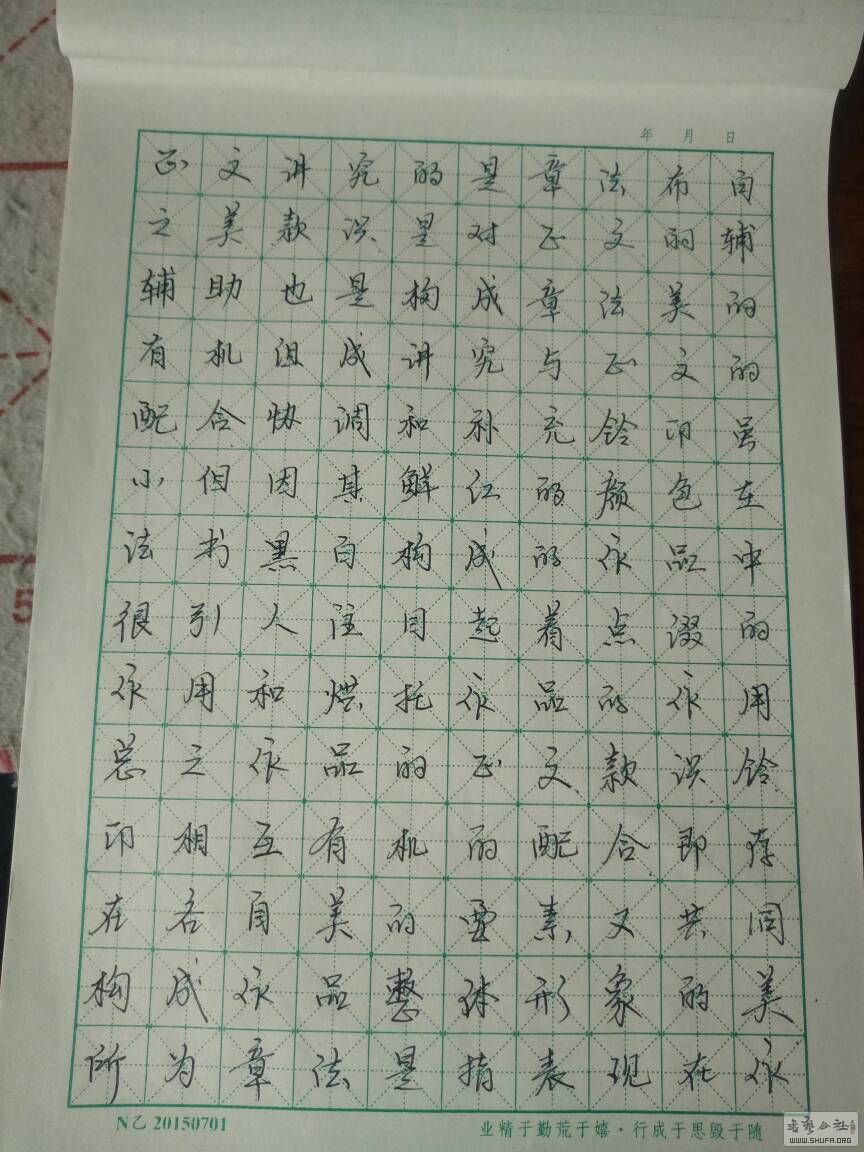 年 月 日
正文讲究的是章法布局
之美款识是对正文的辅
辅助也是构成章法美的
有机组成讲究与正文的
配合协调和补充铃印虽
小但因其鲜红的颜色在
法书黑白构成的作品中
很引人注目起着点缀的
作用和烘托作品的作用
总之作品的正文款识铃
印相互有机的配合即存
在各自美的要素又共同
构成作品整体形象的美
所为章法是指表现在作
N乙 20150701
业精于勤荒于嬉·行成于思毁于随
书艺公社
WWW.SHUFA.ORG